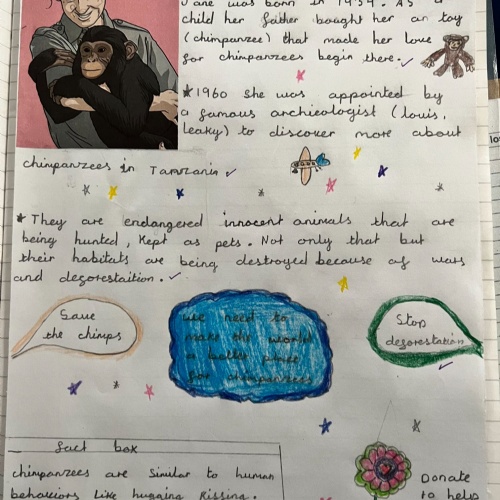 Jane was born in 1934. As a
child her father bought her an toy
(chimpanzee) that made her love
for chimpanzees begin there.
★1960 she was appointed by
a famous archieologist (louis,
leaky) to discover more about
chimpanzees in Tanzania
★They are endangered innocent animals that are
being hunted, kept as pets. Not only that but
their habitats are being destroyed because of wars
and deforestaition.
Save
the chimps
we need to
make the world
a better place
for chimpanzees
Stop
deforestation
fact box
chimpanzees are similar to human
behaviors like hugging kissing.
Donate
to help